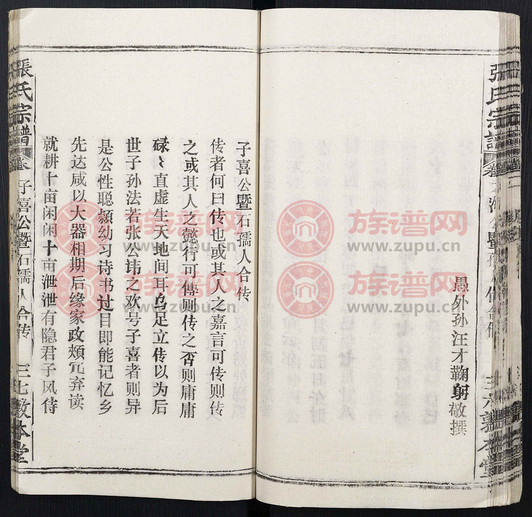 愚外孙汪才鞠躬敬撰
子喜公暨石孺人合传
传者何曰传也或其人之嘉言可传则传
之或其人之懿行可傳则传之否则庸庸
碌〻直虚生天地间耳乌足立传以为后
世子孙法若张公讳之欢号子喜者则异
是公性聪颖幼习诗书过目即能记忆乡
先达咸以大器相期后缘家政頖冗弃读
就耕十亩闲闲十亩泄泄有隐君子风侍
張氏宗譜
子喜公暨石孺人合传
三七敦本堂
張氏宗譜
族谱网
www.zupu.cn
族谱网
www.zupu.cn
族谱网
www.zupu.cn
族谱网
www.zupu.cn